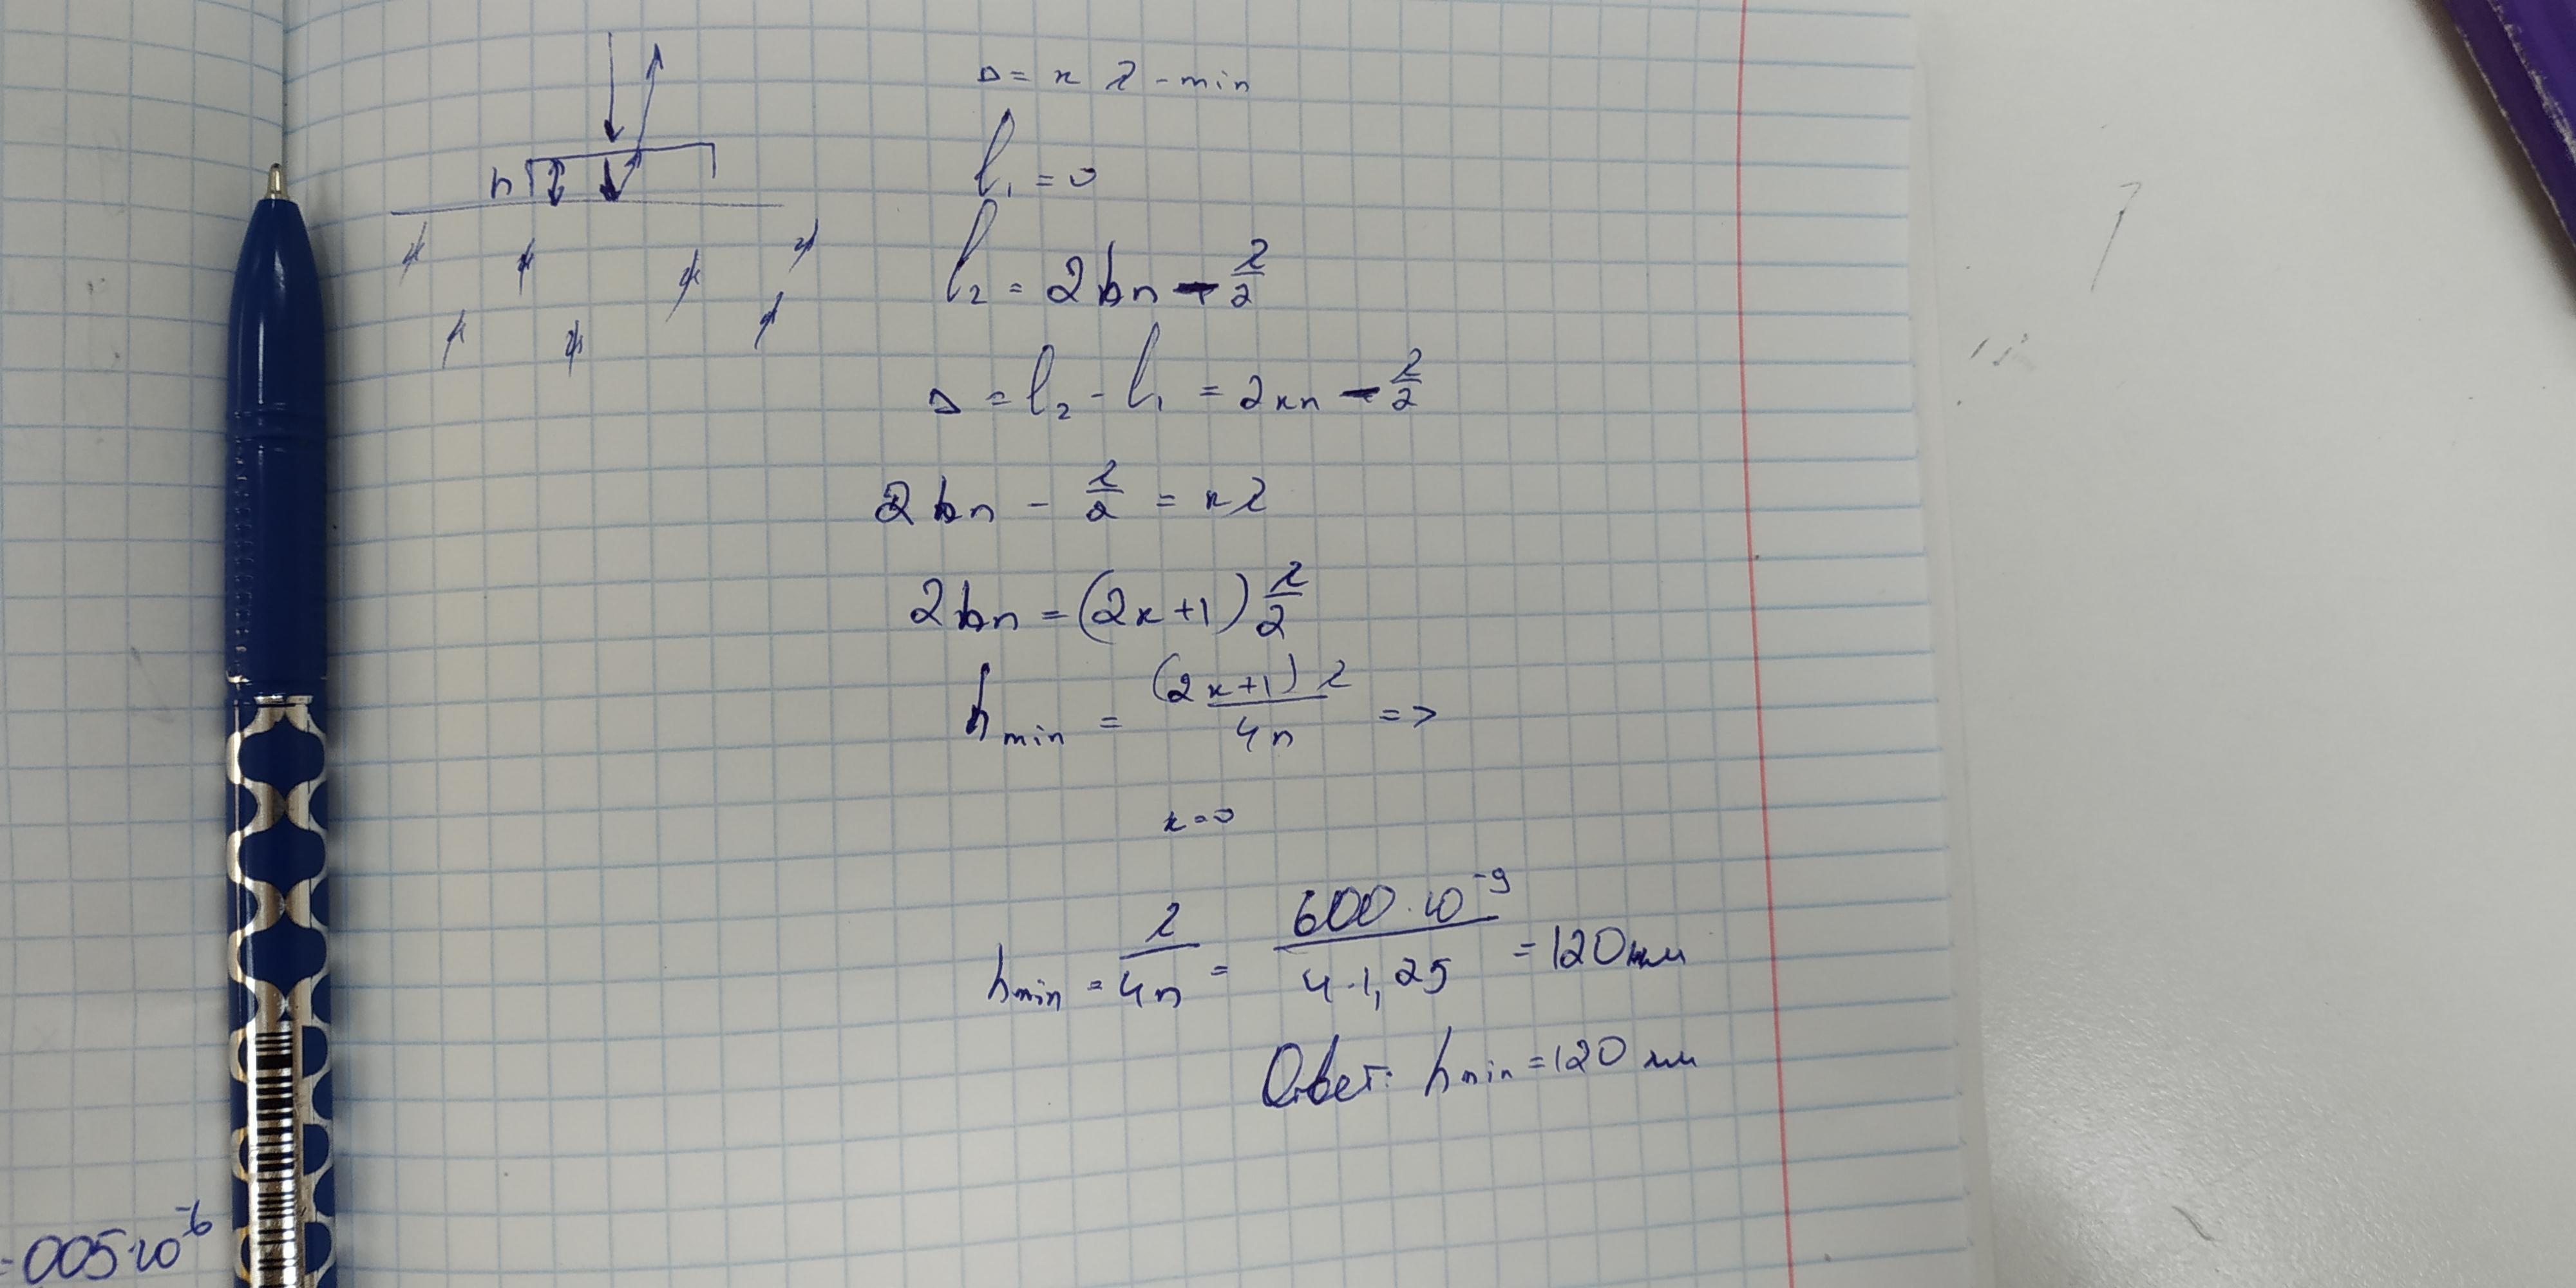 Δ = к λ - min
h
l₁ = 0
l₂ = 2hn - λ/2
Δ = l₂ - l₁ = 2кn - λ/2
2hn - λ/2 = кλ
2hn = (2к+1) λ/2
h min = (2к+1) λ / 4n =>
к = 0
h min = λ / 4n = 600 · 10⁻⁹ / 4 · 1,25 = 120 нм
Ответ: h min = 120 нм
= 005·10⁻⁶